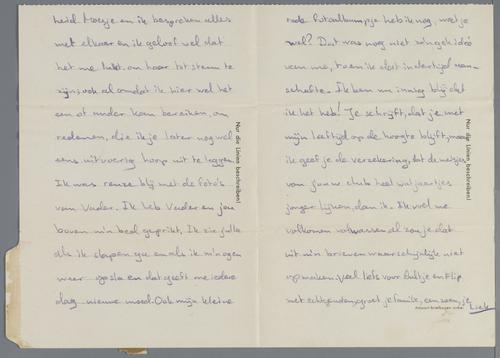 heid. Loesje en ik bespreken alles
met elkaar en ik geloof wel dat
het me lukt om haar tot steun te
zijn, ook al omdat ik hier wel het
een of ander kan bereiken, om
redenen, die ik je later nog wel
eens uitvoerig hoop uit te leggen.
Ik was reuze blij met de foto's
van Vader. Ik heb Vader en jou
boven mijn bed geprikt. Ik zie jullie
als ik slapen ga en als ik m'n ogen
weer opsla en dat geeft me iedere
dag nieuwe moed. Ook mijn kleine
Nur die Linien beschreiben!
rode fotoalbumpje heb ik nog, weet je
wel? Dat was nog niet zo'n gek idee
van me, toen ik dat indertijd aan-
schafte. Ik ben nu innig blij dat
ik het heb! Je schrijft, dat je met
mijn leeftijd op de hoogte blijft, maar
ik geef je de verzekering, dat de meisjes
van jouw club heel wat jaartjes
jonger lijken, dan ik. Ik voel me
volkomen volwassen al zou je dat
uit mijn brieven waarschijnlijk niet
opmaken. Veel liefs voor en Flip
met echtgenden, groet je familie, een zoen, je
Liek
Nur die Linien beschreiben!